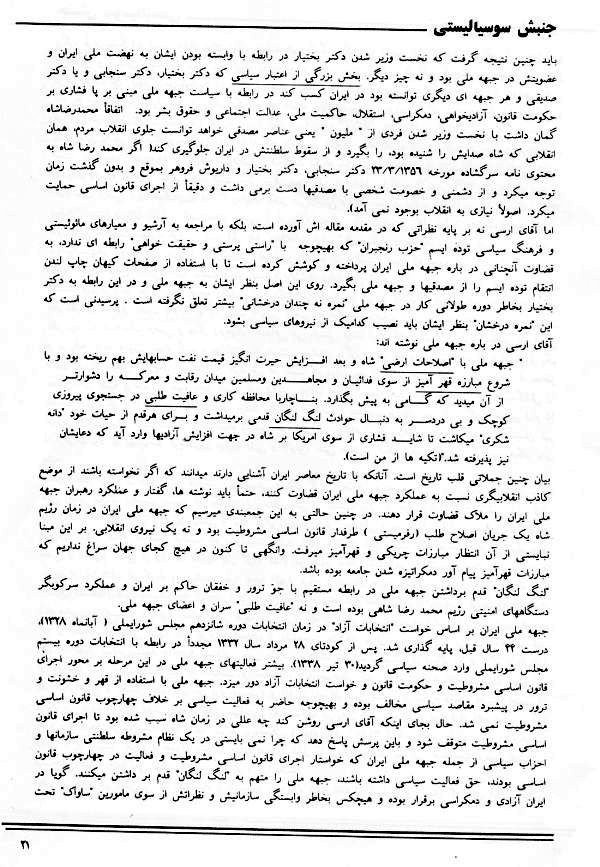 جنبش سوسیالیستی
باید چنین نتیجه گرفت که نخست وزیر شدن دکتر بختیار در رابطه با وابسته بودن ایشان به نهضت ملی ایران و
عضویتش در جبهه ملی بود و نه چیز دیگر. بخش بزرگی از اعتبار سیاسی که دکتر بختیار، دکتر سنجابی و یا دکتر
صدیقی و هر جبهه ای دیگری توانسته بود در ایران کسب کند در رابطه با سیاست جبهه ملی مبنی بر پا فشاری بر
حکومت قانون، آزادیخواهی، دمکراسی، استقلال، حاکمیت ملی، عدالت اجتماعی و حقوق بشر بود. اتفاقاً محمدرضاشاه
گمان داشت با نخست وزیر شدن فردی از " ملیون " یعنی عناصر مصدقی خواهد توانست جلوی انقلاب مردم، همان
انقلابی که شاه صدایش را شنیده بود، را بگیرد و از سقوط سلطنتش در ایران جلوگیری کند( اگر محمد رضا شاه به
محتوی نامه سرگشاده مورخه ۲۳/۳/۱۳۵۶ دکتر سنجابی، دکتر بختیار و داریوش فروهر بموقع و بدون گذشت زمان
توجه میکرد و از دشمنی و خصومت شخصی با مصدقیها دست برمی داشت و دقیقاً از اجرای قانون اساسی حمایت
میکرد. اصولاً نیازی به انقلاب بوجود نمی آمد).
اما آقای ارسی نه بر پایه نظراتی که در مقدمه مقاله اش آورده است، بلکه با مراجعه به آرشیو و معیارهای مائوئیستی
و فرهنگ سیاسی توده ایسم "حزب رنجبران" که بهیچوجه با "راستی پرستی و حقیقت خواهی" رابطه ای ندارد، به
قضاوت آنچنانی در باره جبهه ملی ایران پرداخته و کوشش کرده است تا با استفاده از صفحات کیهان چاپ لندن
انتقام توده ایسم را از مصدقیها و جبهه ملی بگیرد. روی این اصل بنظر ایشان به جبهه ملی و در این رابطه به دکتر
بختیار بخاطر دوره طولانی کار در جبهه ملی "نمره نه چندان درخشانی" بیشتر تعلق نگرفته است . پرسیدنی است که
این "نمره درخشان" بنظر ایشان باید نصیب کدامیک از نیروهای سیاسی بشود.
آقای ارسی در باره جبهه ملی نوشته اند:
" جبهه ملی با "اصلاحات ارضی" شاه و بعد افزایش حیرت انگیز قیمت نفت حسابهایش بهم ریخته بود و با
شروع مبارزه قهر آمیز از سوی فدائیان و مجاهدین ومسلمین میدان رقابت و معرکه را دشوارتر
از آن میدید که گامی به پیش بگذارد. بناچاربا محافظه کاری و عافیت طلبی در جستجوی پیروزی
کوچک و بی دردسر به دنبال حوادث لنگ لنگان قدمی برمیداشت و برای هرقدم از حیات خود "دانه
شکری" میکاشت تا شاید فشاری از سوی امریکا بر شاه در جهت افزایش آزادیها وارد آید که دعایشان
نیز پذیرفته شد."(تکیه ها از من است).
بیان چنین جملاتی قلب تاریخ است. آنانکه با تاریخ معاصر ایران آشنایی دارند میدانند که اگر نخواسته باشند از موضع
کاذب انقلابیگری نسبت به عملکرد جبهه ملی ایران قضاوت کنند، حتماً باید نوشته ها، گفتار و عملکرد رهبران جبهه
ملی ایران را ملاک قضاوت قرار دهند. در چنین حالتی به این جمعبندی میرسیم که جبهه ملی ایران در زمان رژیم
شاه یک جریان اصلاح طلب (رفرمیستی ) طرفدار قانون اساسی مشروطیت بود و نه یک نیروی انقلابی. بر این مبنا
نبایستی از آن انتظار مبارزات چریکی و قهرآمیز میرفت. وانگهی تا کنون در هیچ کجای جهان سراغ نداریم که
مبارزات قهرآمیز پیام آور دمکراتیزه شدن جامعه بوده باشد.
"لنگ لنگان" قدم برداشتن جبهه ملی در رابطه مستقیم با جوّ ترور و خفقان حاکم بر ایران و عملکرد سرکوبگر
دستگاههای امنیتی رژیم محمد رضا شاهی بوده است و نه "عافیت طلبی" سران و اعضای جبهه ملی.
جبهه ملی ایران بر اساس خواست "انتخابات آزاد" در زمان انتخابات دوره شانزدهم مجلس شورایملی ( آبانماه ۱۳۲۸)،
درست ۴۴ سال قبل، پایه گذاری شد. پس از کودتای ۲۸ مرداد سال ۱۳۳۲ مجدداً در رابطه با انتخابات دوره بیستم
مجلس شورایملی وارد صحنه سیاسی گردید(۳۰ تیر ۱۳۳۸). بیشتر فعالیتهای جبهه ملی در این مرحله بر محور اجرای
قانون اساسی مشروطیت و حکومت قانون و خواست انتخابات آزاد دور میزد. جبهه ملی با استفاده از قهر و خشونت و
ترور در پیشبرد مقاصد سیاسی مخالف بوده و بهیچوجه حاضر به فعالیت سیاسی بر خلاف چهارچوب قانون اساسی
مشروطیت نمی شد. حال بجای اینکه آقای ارسی روشن کند چه عللی در زمان شاه سبب شده بود تا اجرای قانون
اساسی مشروطیت متوقف شود و باین پرسش پاسخ دهد که چرا نمی بایستی در یک نظام مشروطه سلطنتی سازمانها و
احزاب سیاسی از جمله جبهه ملی ایران که خواستار اجرای قانون اساسی مشروطیت و فعالیت در چهارچوب قانون
اساسی بودند، حق فعالیت سیاسی داشته باشند، جبهه ملی را متهم به "لنگ لنگان" قدم بر داشتن میکنند. گویا در
ایران آزادی و دمکراسی برقرار بوده و هیچکس بخاطر وابستگی سازمانیش و نظراتش از سوی مامورین "ساواک" تحت
۲۱